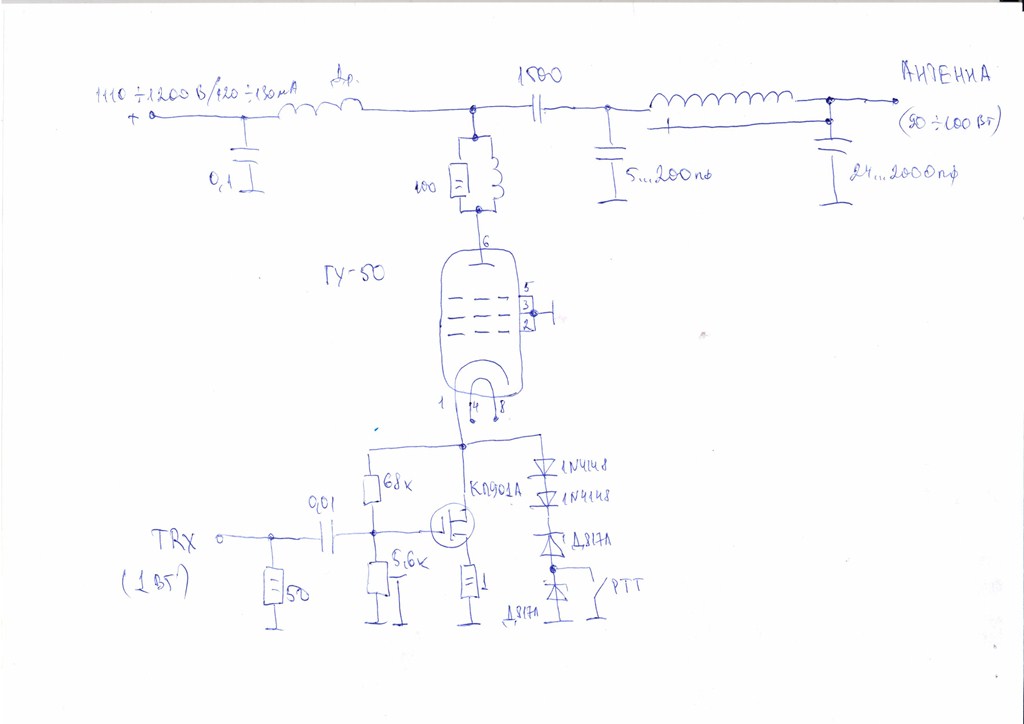 1110÷1200 В/120÷130мА
Др.
1500
АНТЕННА
(90÷100 Вт)
+
0,1
100
5...200пф
24...2000пф
6
ГУ-50
5
3
2
1
4
8
68к
КП901А
1N4148
1N4148
0,01
TRX
(1 Вт)
50
5,6к
1
Д817А
PTT
Д817А